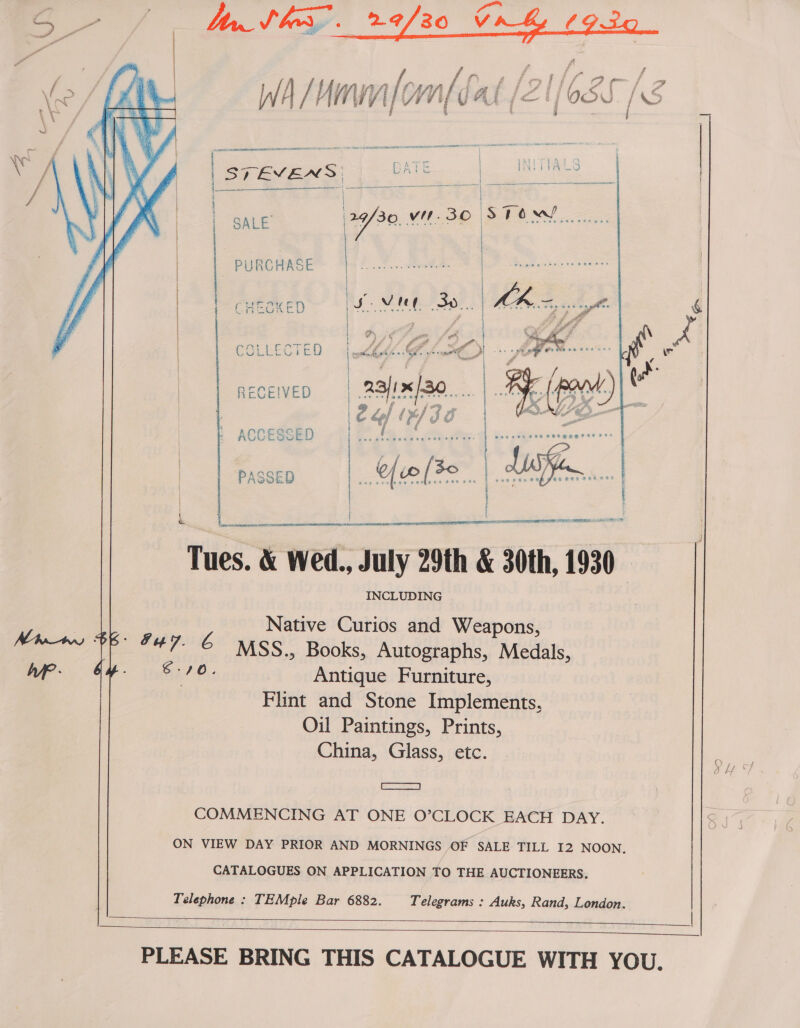 29/30 July 1930
WA/HMM/Com/Sal/21/635/3
STEVENS DATE INITIALS
SALE 29/30 VII. 30 STOW
PURCHASE
CHECKED 5. VIII 30
COLLECTED
RECEIVED 23/IX/30 (part)
24/IX/30
ACCESSED
PASSED 6/10/30
Tues. & Wed., July 29th & 30th, 1930
INCLUDING
Native Curios and Weapons,
MSS., Books, Autographs, Medals,
Antique Furniture,
Flint and Stone Implements,
Oil Paintings, Prints,
China, Glass, etc.
COMMENCING AT ONE O'CLOCK EACH DAY.
ON VIEW DAY PRIOR AND MORNINGS OF SALE TILL 12 NOON.
CATALOGUES ON APPLICATION TO THE AUCTIONEERS.
Telephone : TEMple Bar 6882. Telegrams : Auks, Rand, London.
PLEASE BRING THIS CATALOGUE WITH YOU.